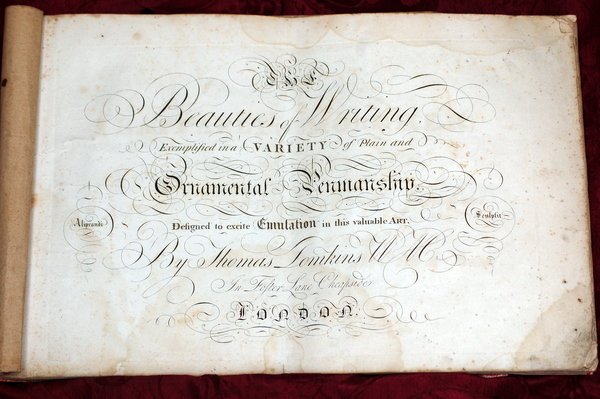 THE
Beauties of Writing,
Exemplified in a VARIETY of Plain and
Ornamental Penmanship.
Designed to excite Emulation in this valuable ART.
Sculpsit
By Thomas Tomkins W M.
In Foster Lane Cheapside
LONDON.